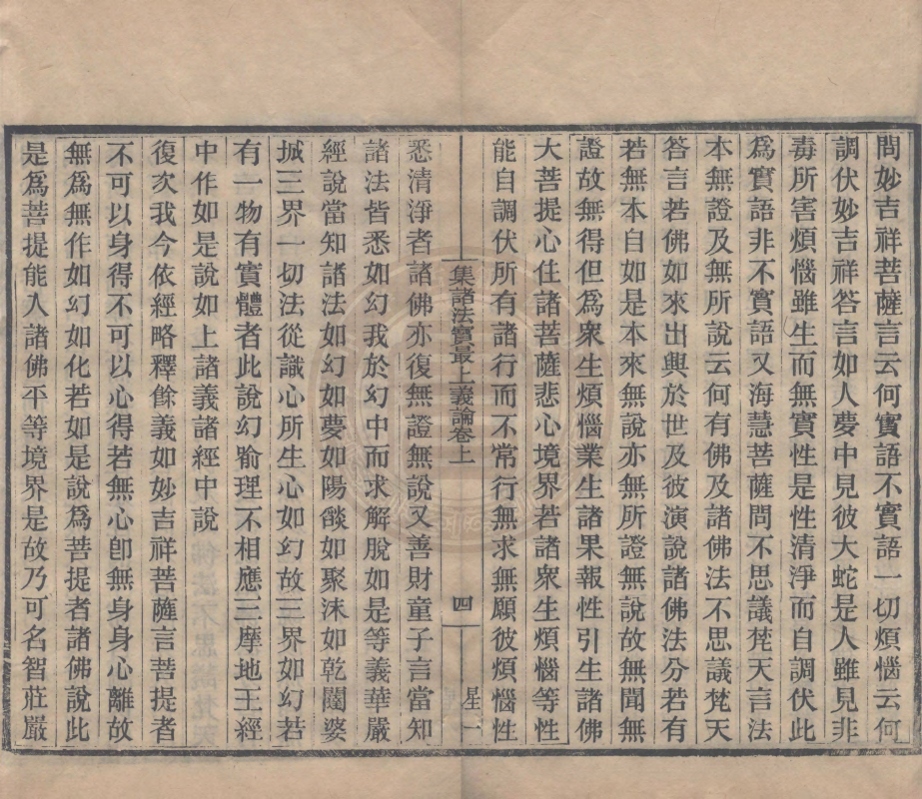 問妙吉祥菩薩言云何實語不實語一切煩惱云何
調伏妙吉祥答言如人夢中見彼大蛇是人雖見非
毒所害煩惱雖生而無實性是性清淨而自調伏此
爲實語非不實語又海慧菩薩問不思議梵天言法
本無證及無所說云何有佛及諸佛法不思議梵天
答言若佛如來出興於世及彼演說諸佛法分若有
若無本自如是本來無說亦無所證無說故無聞無
證故無得但爲衆生煩惱業生諸果報性引生諸佛
大菩提心住諸菩薩悲心境界若諸衆生煩惱等性
能自調伏所有諸行而不常行無求無願彼煩惱性
集諸法寶最上義論卷上 四 星一
悉清淨者諸佛亦復無證無說又善財童子言當知
諸法皆悉如幻我於幻中而求解脫如是等義華嚴
經說當知諸法如幻如夢如陽燄如聚沫如乾闥婆
城三界一切法從識心所生心如幻故三界如幻若
有一物有實體者此說幻喻理不相應三摩地王經
中作如是說如上諸義諸經中說
復次我今依經略釋餘義如妙吉祥菩薩言菩提者
不可以身得不可以心得若無心卽無身身心離故
無爲無作如幻如化若如是說爲菩提者諸佛說此
是爲菩提能入諸佛平等境界是故乃可名智莊嚴